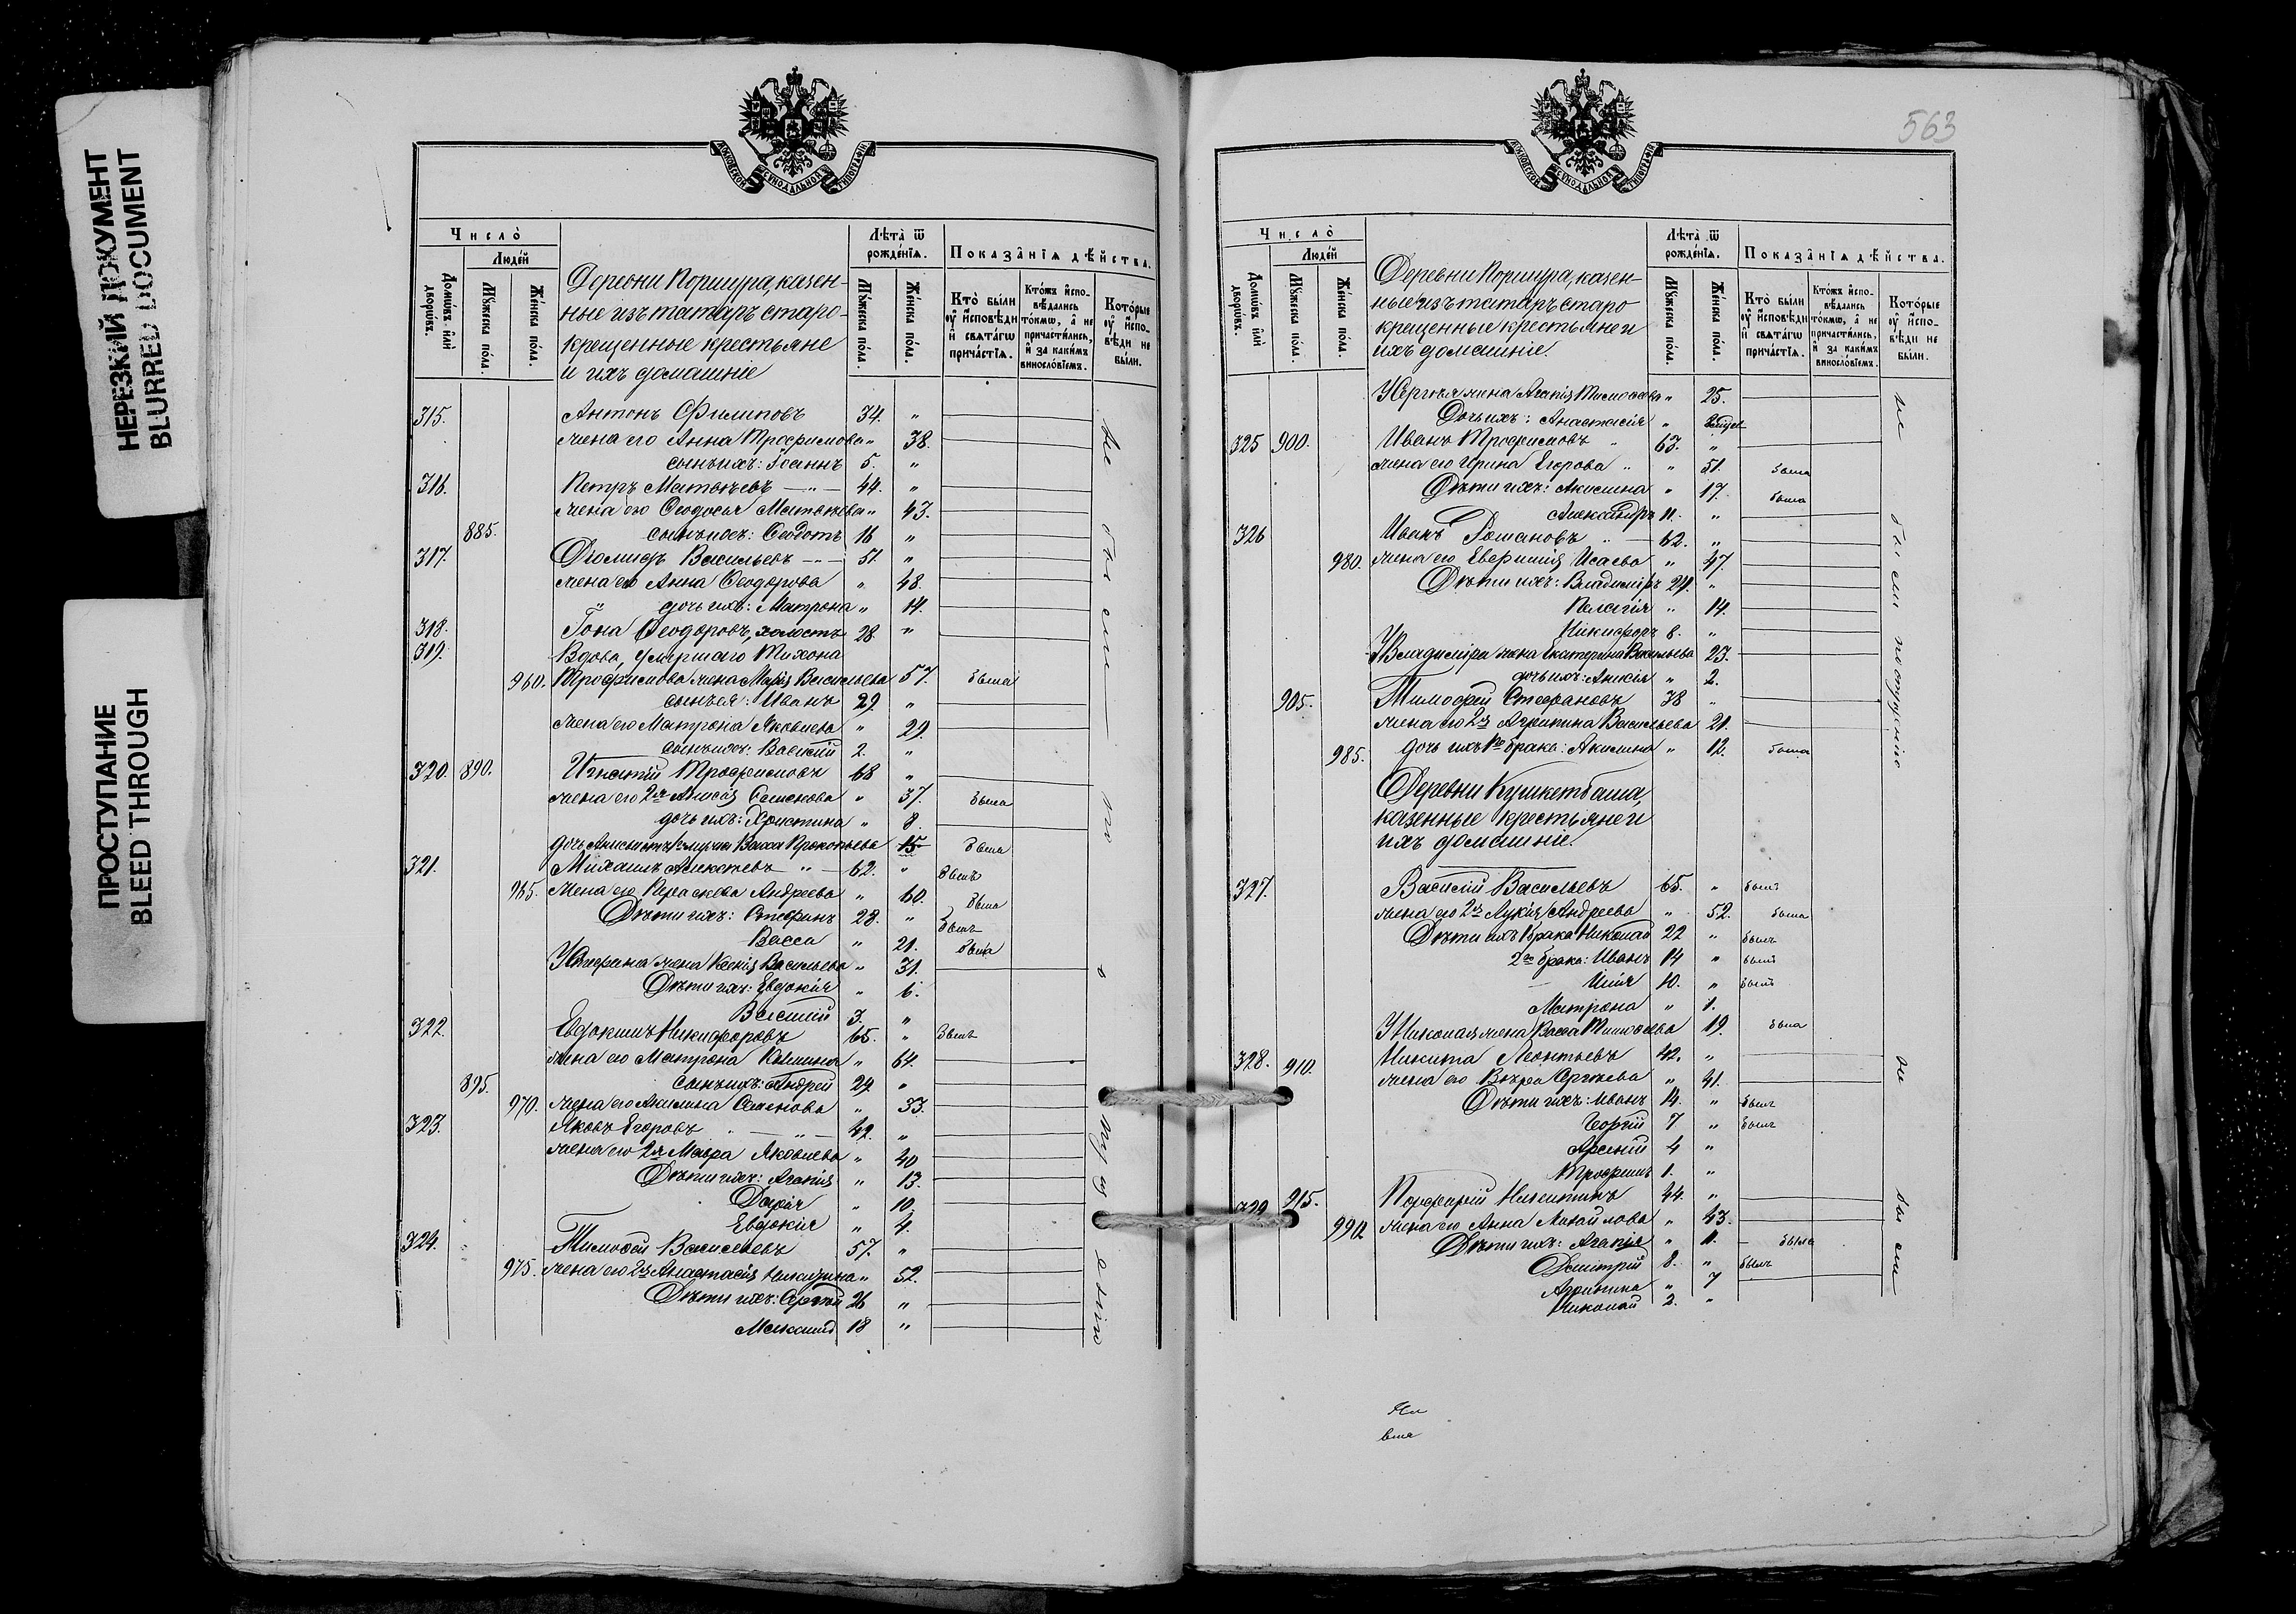 НЕРЕЗКИЙ ДОКУМЕНТ
BLURRED DOCUMENT
ПРОСТУПАНИЕ
BLEED THROUGH
Число̀
Людей
Домѡвъ или дворѡвъ.
Мꙋжеска пола.
Женска пола.
Деревни Поршура, казен-
ные изъ татаръ старо-
крещенные крестьяне
и ихъ домашніе
Лѣта ѿ рожденїѧ.
Мꙋжеска пола.
Женска пола.
Показанїѧ дѣйства.
Кто были оу исповѣди и свѧтагѡ причастїѧ.
Ктожъ исповѣдались токмѡ, а не причастились, и за какимъ винословїемъ.
Которые оу исповѣди не были.
315. Антонъ Филиповъ 34. "
жена его Анна Трофимова " 38.
сынъ ихъ: Іоаннъ 5. "
316. Петръ Матвѣевъ 44. "
жена его Ѳеодосья Матвѣева " 43.
885. сынъ ихъ: Ѳедотъ 16 "
317. Васильевъ 51. "
жена его Анна Ѳеодорова " 48.
дочь ихъ: Матрона " 14.
318. Іона Ѳеодоровъ, холостъ 28. "
319. Вдова, умершаго Тихона
960. Трофимова жена Марія Васильева 57. была
сынъ ея: Иванъ 29. "
жена его Матрона Яковлева " 29.
сынъ ихъ: Василій 2. "
320. 890. Игнатій Трофимовъ 68 "
жена его 2я Анисія Семенова " 37. была
дочь ихъ: Христина " 8.
Васса Прокопьева 15 была
321. Михаилъ Алексѣевъ 62. " былъ
965. жена его Параскева Андреева " 60. была
Дѣти ихъ: Стефанъ 28. " былъ
Васса " 21. была
У Стефана жена Ксенія Васильева " 31.
Дѣти ихъ: Евдокія " 6.
Василій 3. "
322. Евдокимъ Никифоровъ 65. " былъ
жена его Матрона " 64.
895. сынъ ихъ: Андрей 29. "
970. жена его Акилина Семенова " 33.
323. Яковъ Егоровъ 42. "
жена его 2я Мавра Яковлева " 40
Дѣти ихъ: Агапія " 13.
Дарія " 10.
Евдокія " 4.
324. Тимофей Васильевъ 57. "
975. жена его 2я Анастасія " 52.
Дѣти ихъ: Сергѣй 26 "
Максимъ 18 "
не были по опущенію
563
Число̀
Людей
Домѡвъ или дворѡвъ.
Мꙋжеска пола.
Женска пола.
Деревни Поршура, казен-
ные изъ татаръ старо
крещенные крестьяне и
ихъ домашніе.
Лѣта ѿ рожденїѧ.
Мꙋжеска пола.
Женска пола.
Показанїѧ дѣйства.
Кто были оу исповѣди и свѧтагѡ причастїѧ.
Ктожъ исповѣдались токмѡ, а не причастились, и за какимъ винословїемъ.
Которые оу исповѣди не были.
У Сергѣя жена Агапія Тимофеева " 25.
Дочь ихъ: Анастасія "
325 900. Иванъ Трофимовъ 63. "
жена его Ирина Егорова " 51. была
Дѣти ихъ: Акилина " 17. была
Александръ 11. "
326 Иванъ Романовъ 62. "
980. жена его Евфимія Исаева " 47.
Дѣти ихъ: Владиміръ 21. "
Пелагія " 14.
Никифоръ 8. "
У Владиміра жена Екатерина Васильева 23.
дочь ихъ: Анисія " 2.
905. Тимофей Стефановъ 38 "
жена его 2я Агрипина Васильева 21.
985. дочь ихъ 1го брака: Акилина " 12. была
Деревни Кушкетбаша,
казенные крестьяне и
ихъ домашніе.
327. Василій Васильевъ 65. " былъ
жена его 2я Лукія Андреева " 52. была
Дѣти ихъ 1 брака Николай 22 " былъ
2го брака: Иванъ 14 " былъ
Илія 10. " былъ
Матрона " 1.
У Николая жена Васса Тимофеева 19. была
328. 910. Никита Леонтьевъ 42. "
жена его Вѣра Сергѣева " 41.
Дѣти ихъ: Иванъ 14. " былъ
Георгій 7 " былъ
Арсеній 4 "
Трофимъ 1. "
329 915. Порфирій Никитинъ 44. "
990. жена его Анна Михайлова " 43.
Дѣти ихъ: Агапія " 11. была
Дмитрій 8. " былъ
Агрипина " 7
Николай 2. "
не были по опущенію
не были